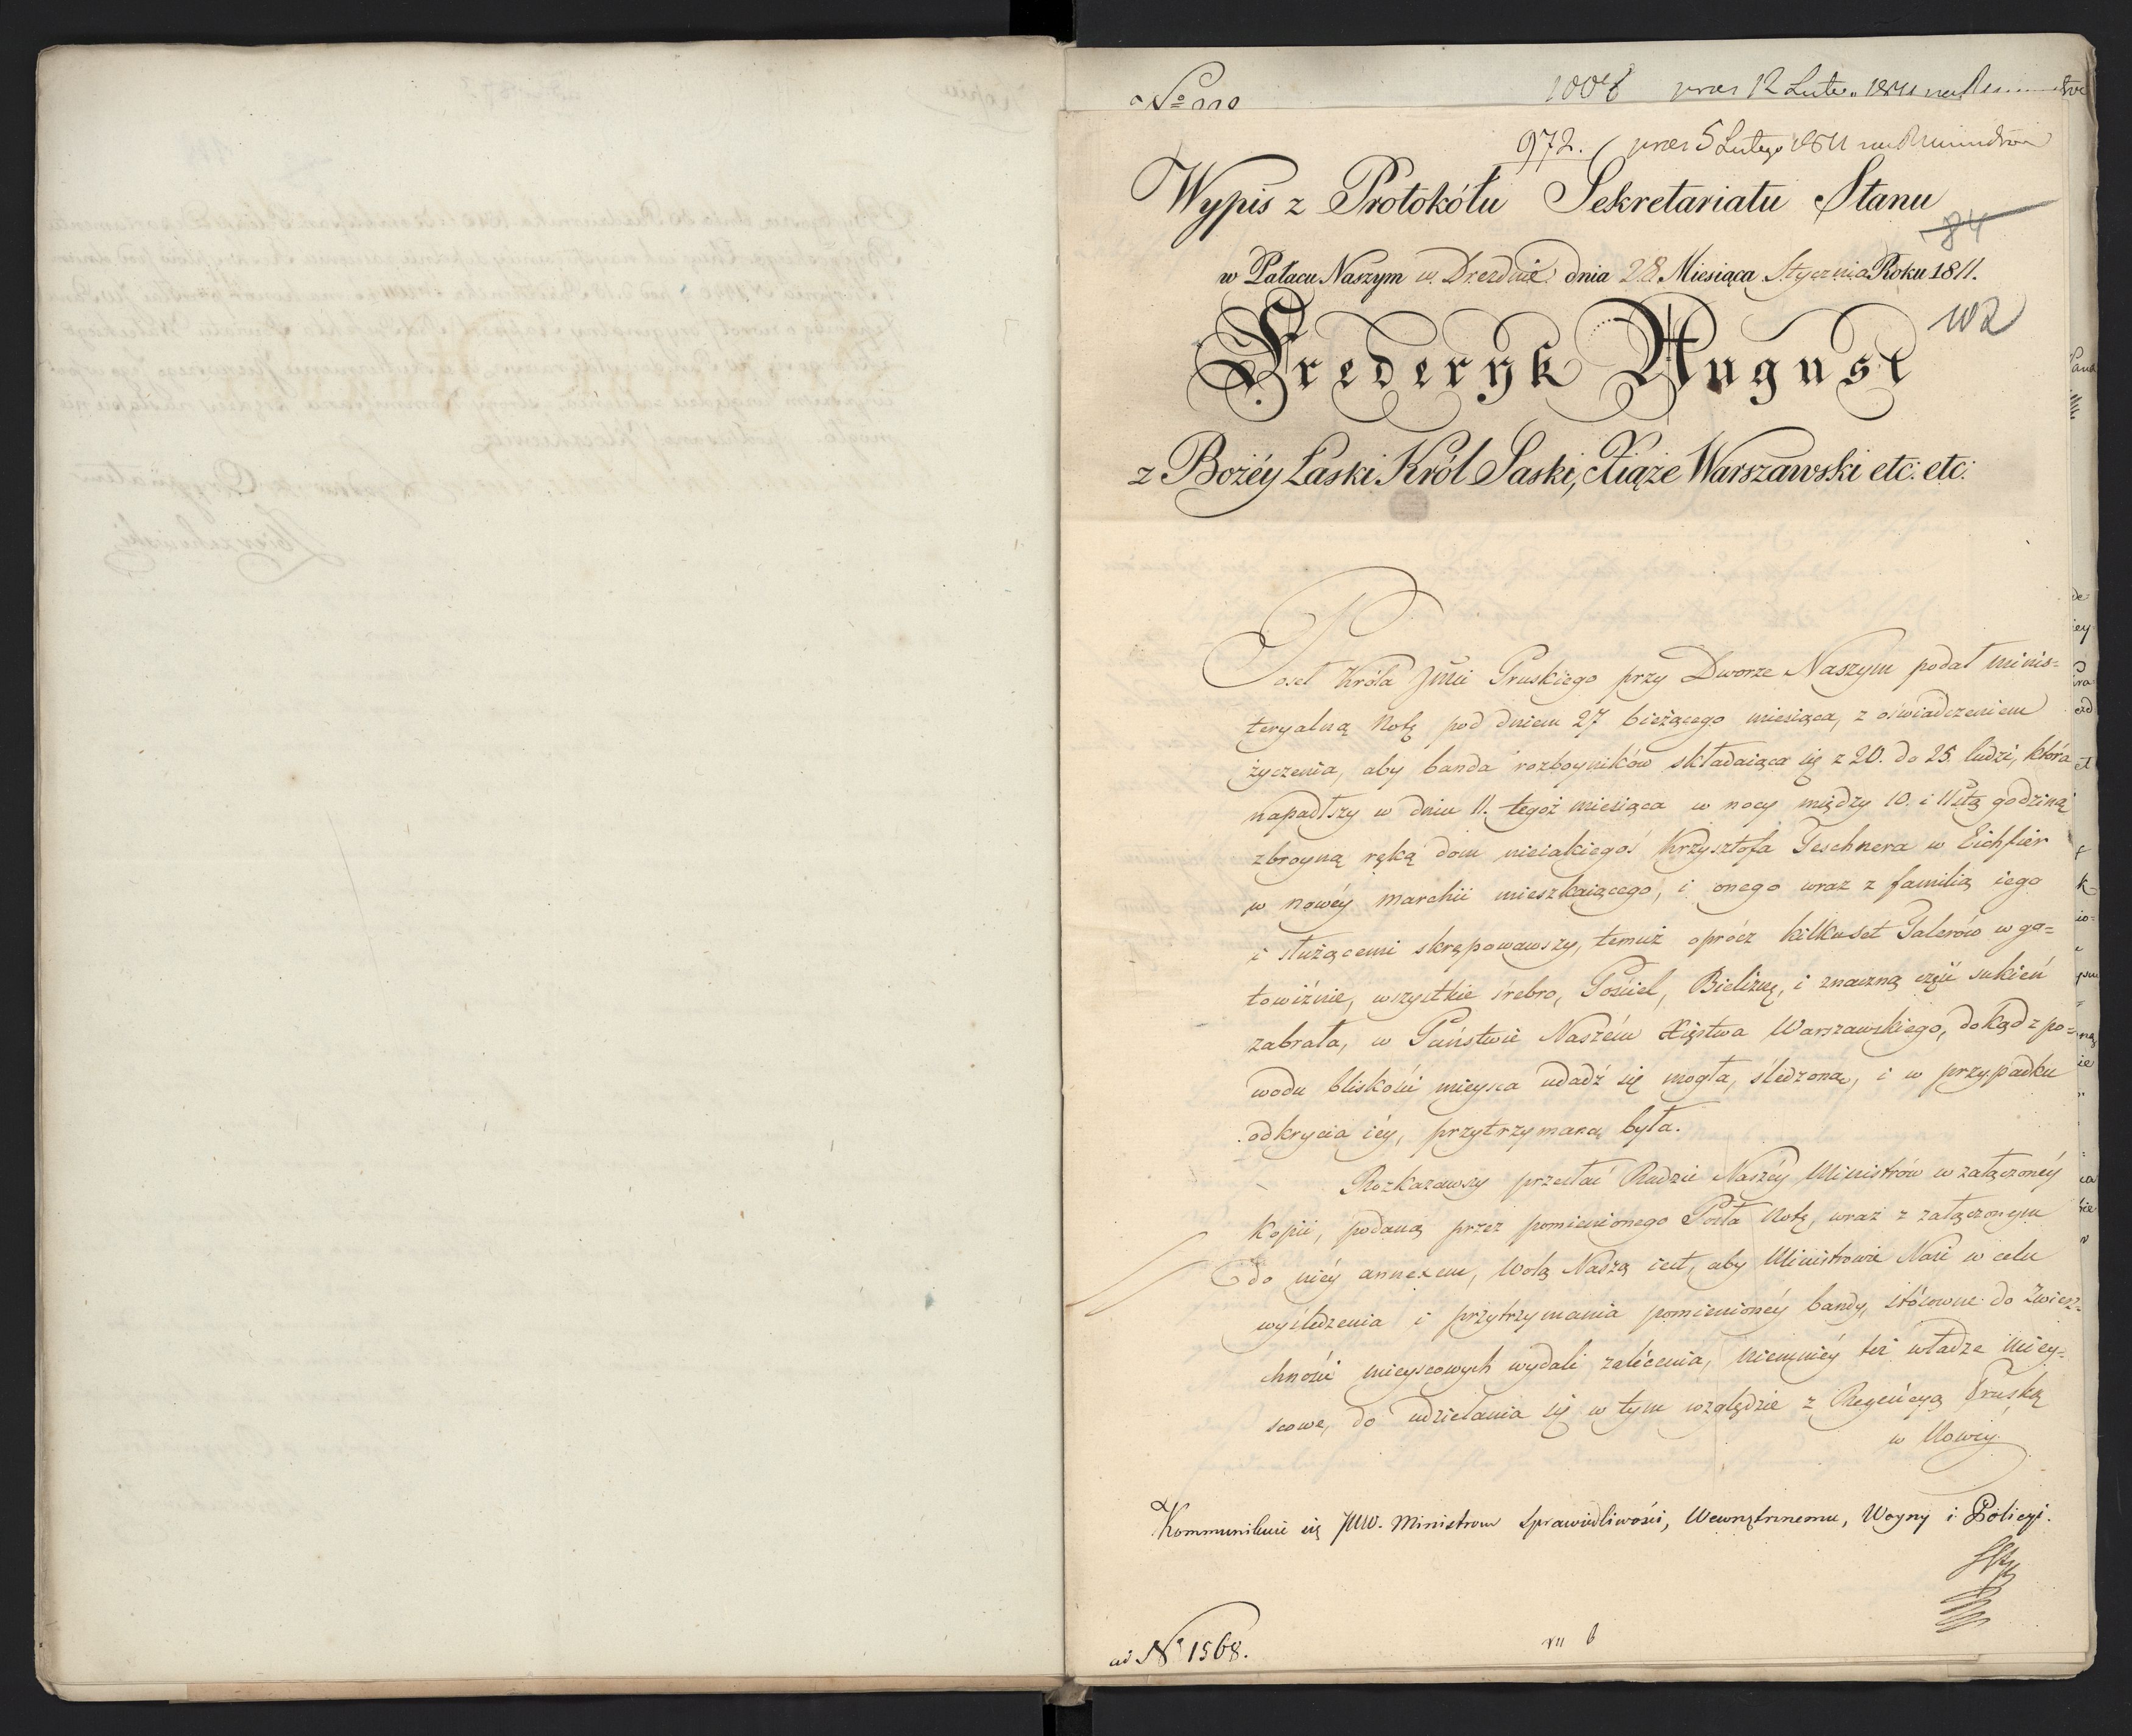 972. prez 5 Lutego 1811
Wypis z Protokółu Sekretariatu Stanu
84
w Pałacu Naszym w Dreznie dnia 28 Miesiąca Stycznia Roku 1811.
102
Frederyk August
z Bożéy Łaski Król Saski, Xiąże Warszawski etc: etc:
Poseł Króla Jmci Pruskiego przy Dworze Naszym podał minis=
teryalną Notę pod dniem 27 bieżącego miesiąca, z oświadczeniem
życzenia, aby banda rozboyników składaiąca się z 20. do 25. ludzi, która
napadłszy w dniu 11. tegoż miesiąca w nocy między 10. i 11stą godziną
zbroyną ręką dom nieiakiegoś Krzysztofa Teschnera w Eichfier
w nowéy marchii mieszkaiącego, i onego wraz z familią iego
i służącemi skrępowawszy, temuż oprócz kilkuset Talerów w go=
towiźnie, wszystkie srebro, Pościel, Bieliznę, i znaczną część sukień
zabrała, w Państwie Naszém Xięstwa Warszawskiego, dokąd z po=
wodu bliskości mieysca udadź się mogła, śledzoną, i w przypadku
odkrycia iéy, przytrzymaną była.
Rozkazawszy przesłać Radzie Naszéy Ministrów w załączonéy
Kopii, podaną przez pomienionego Posła Notę, wraz z załączonym
do niéy annexem, Wolą Naszą iest, aby Ministrowie Nasi w celu
wyśledzenia i przytrzymania pomienionéy bandy, stósowne do Zwierz=
chności mieyscowych wydali zalécenia, niemniéy też władze miey=
scowe, do udzielania się w tym względzie z Regencyą Pruską
w Nowéy
Kommunikuie się JWW. Ministrom Sprawiedliwości, Wewnętrznemu, Woyny i Policyi.
ad No 1568.